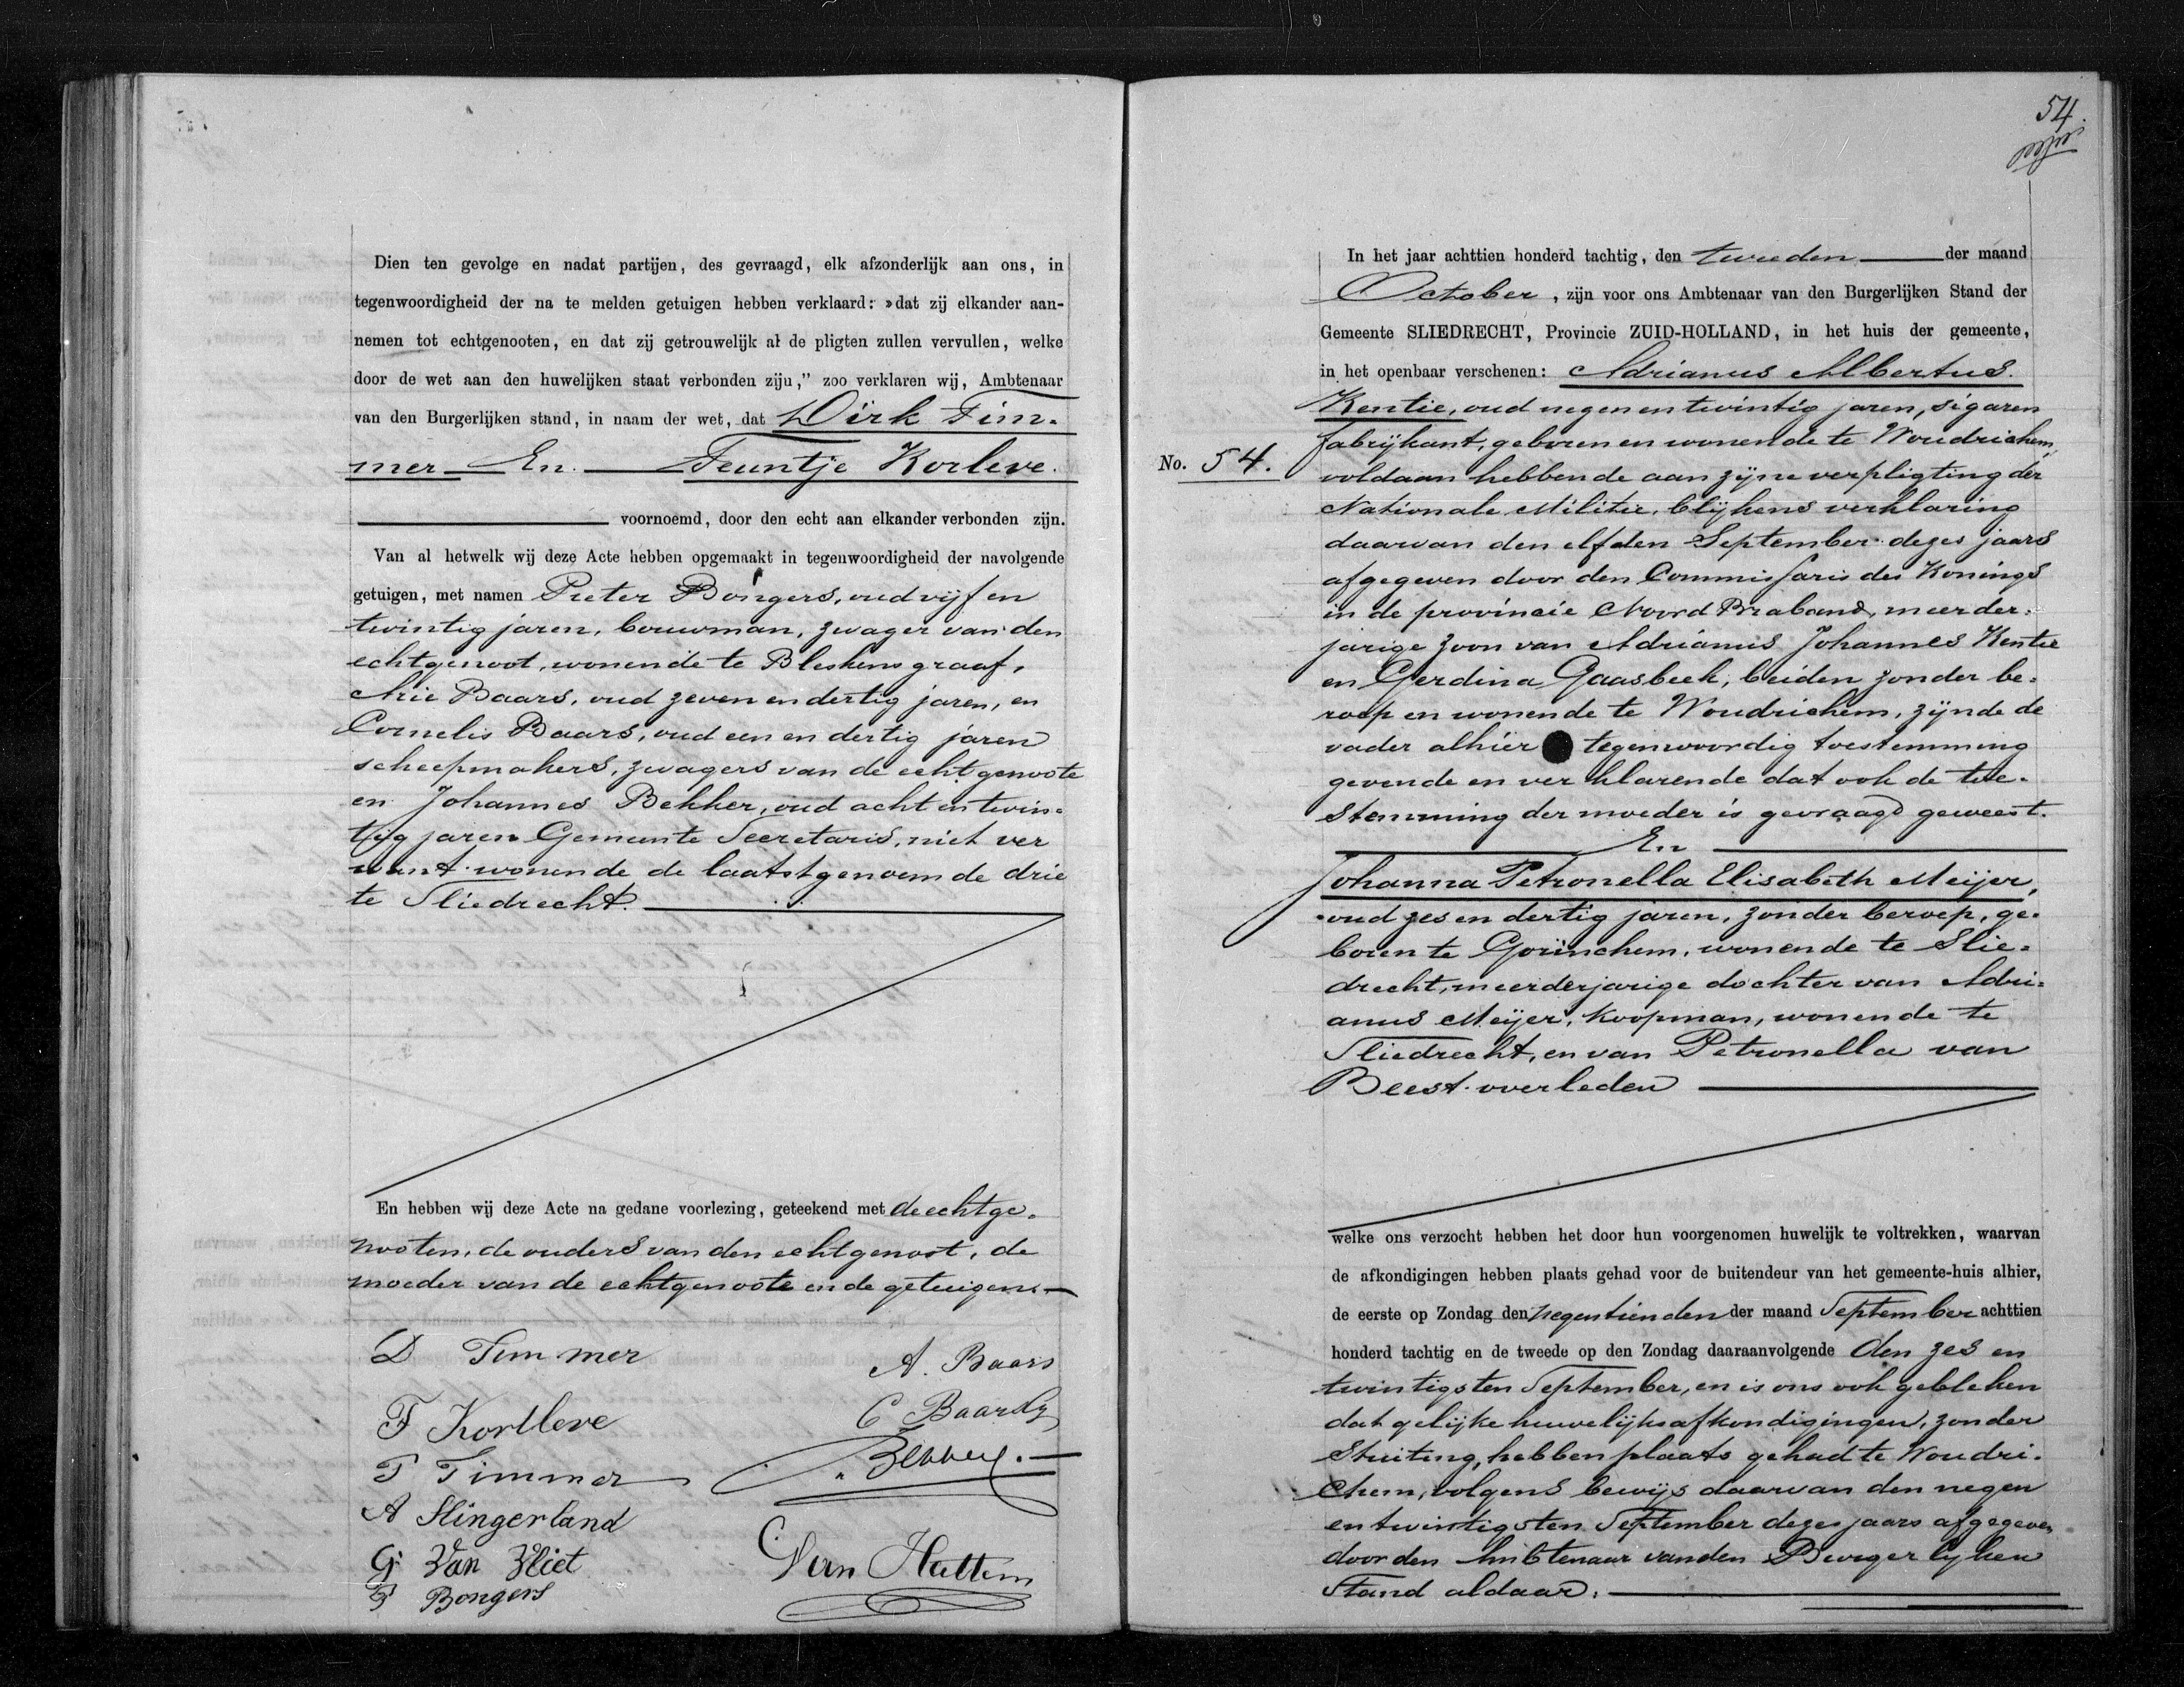 Dien ten gevolge en nadat partijen, des gevraagd, elk afzonderlijk aan ons, in
tegenwoordigheid der na te melden getuigen hebben verklaard: »dat zij elkander aan-
nemen tot echtgenooten, en dat zij getrouwelijk al de pligten zullen vervullen, welke
door de wet aan den huwelijken staat verbonden zijn," zoo verklaren wij, Ambtenaar
van den Burgerlijken stand, in naam der wet, dat Dirk Tim-
mer En. Teuntje Korleve.
voornoemd, door den echt aan elkander verbonden zijn.
Van al hetwelk wij deze Acte hebben opgemaakt in tegenwoordigheid der navolgende
getuigen, met namen Pieter Bongers, oud vijf en
twintig jaren, bouwman, zwager van den
echtgenoot, wonende te Bleskensgraaf,
Arie Baars, oud zeven en dertig jaren, en
Cornelis Baars, oud een en dertig jaren
scheepmakers, zwagers van de echtgenoote
en Johannes Bekker, oud acht en twin-
tig jaren Gemeente Secretaris, niet ver
want wonende de laatstgenoemde drie
te Sliedrecht.
En hebben wij deze Acte na gedane voorlezing, geteekend met de echtge-
nooten, de ouders van den echtgenoot, de
moeder van de echtgenoote en de getuigen.
D Timmer
A. Baars
F Kortleve
C Baars
T Timmer
Bekker.
A Slingerland
G Van Vliet
P Bongers
54.
In het jaar achttien honderd tachtig, den tweeden der maand
October, zijn voor ons Ambtenaar van den Burgerlijken Stand der
Gemeente SLIEDRECHT, Provincie ZUID-HOLLAND, in het huis der gemeente,
in het openbaar verschenen: Adrianus Albertus.
Kentie, oud negen en twintig jaren, sigaren
No. 54. fabrijkant, geboren en wonende te Woudrichem,
voldaan hebbende aan zijne verpligting der
Nationale Militie, blijkens verklaring
daarvan den elfden September dezes jaars
afgegeven door den Commissaris des Konings
in de provincie Noord Braband, meerder-
jarige zoon van Adrianus Johannes Kentie
en Gerdina Gaasbeek, beiden zonder be-
roep en wonende te Woudrichem, zijnde de
vader alhier tegenwoordig toestemming
gevende en verklarende dat ook de toe-
stemming der moeder is gevraagd geweest.
En
Johanna Petronella Elisabeth Meijer,
oud zes en dertig jaren, zonder beroep, ge-
boren te Gorinchem, wonende te Slie-
drecht, meerderjarige dochter van Adri-
anus Meijer, koopman, wonende te
Sliedrecht, en van Petronella van
Beest overleden
welke ons verzocht hebben het door hun voorgenomen huwelijk te voltrekken, waarvan
de afkondigingen hebben plaats gehad voor de buitendeur van het gemeente-huis alhier,
de eerste op Zondag den negentienden der maand September achttien
honderd tachtig en de tweede op den Zondag daaraanvolgende den zes en
twintigsten September, en is ons ook gebleken
dat gelijke huwelijksafkondigingen, zonder
stuiting, hebben plaats gehad te Woudri-
chem, volgens bewijs daarvan den negen
en twintigsten September dezes jaars afgegeven
door den Ambtenaar van den Burgerlijken
Stand aldaar.